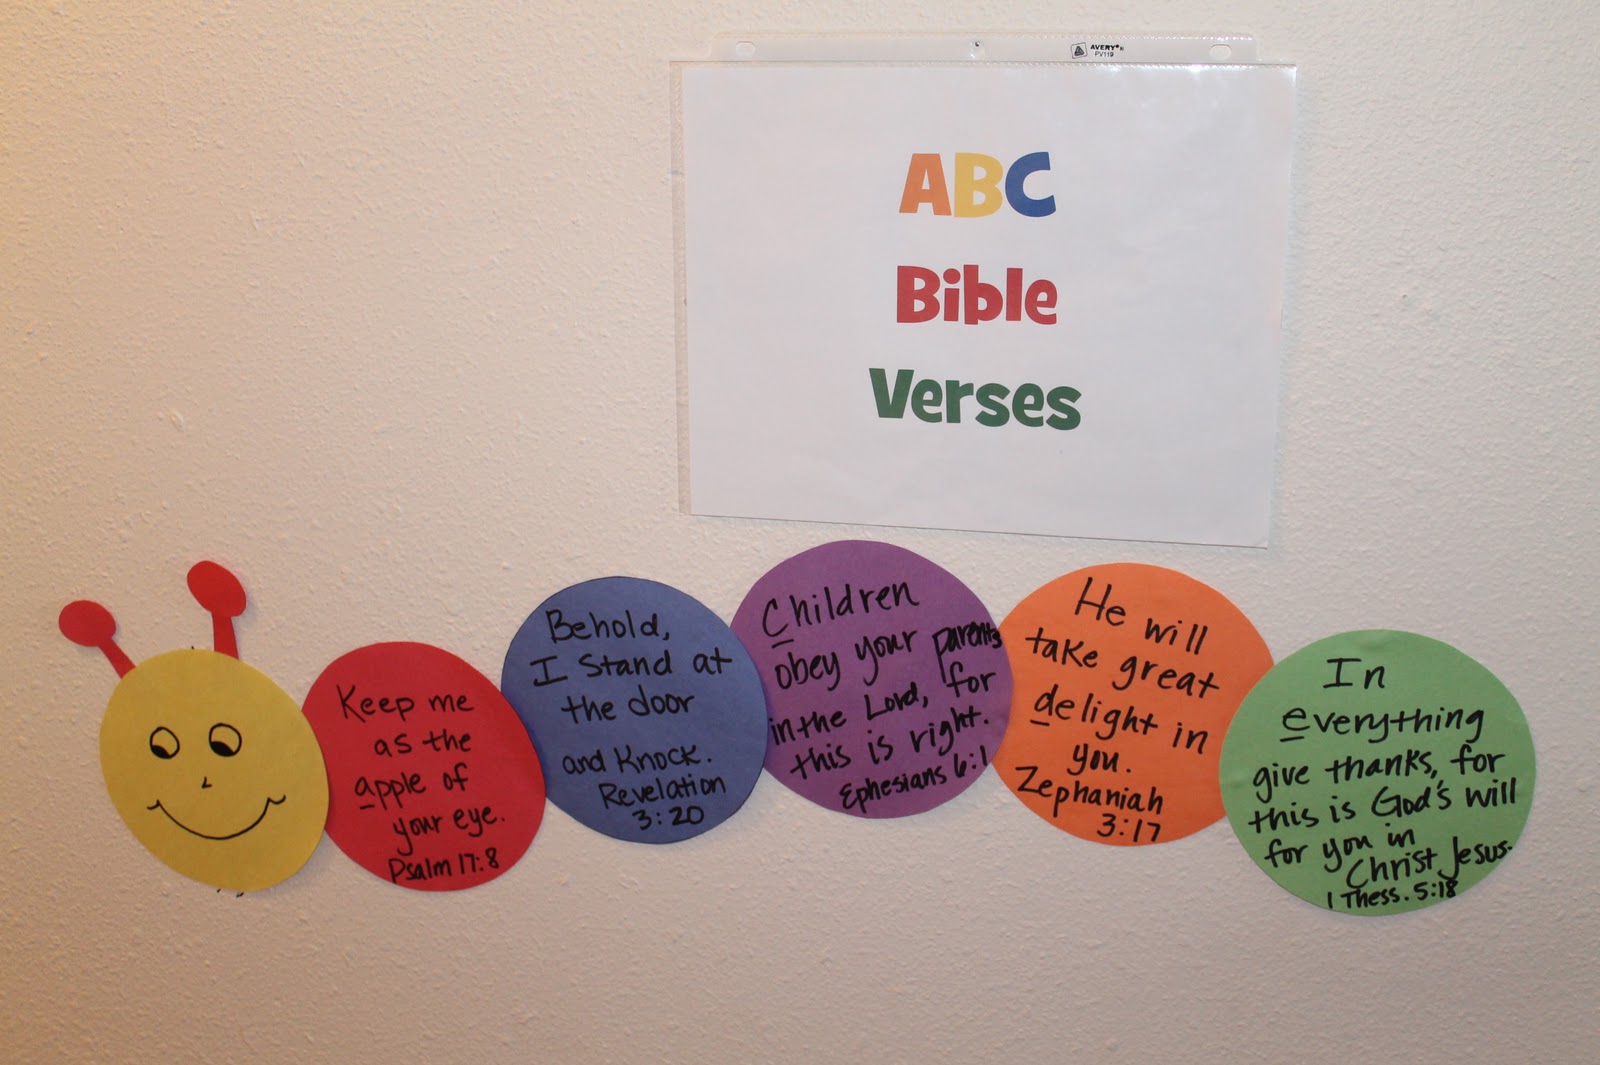 AVERY®
PV119
ABC
Bible
Verses
Keep me
as the
apple of
your eye.
Psalm 17:8
Behold,
I stand at
the door
and Knock.
Revelation
3:20
Children
obey your parents
in the Lord, for
this is right.
Ephesians 6:1
He will
take great
delight in
you.
Zephaniah
3:17
In
everything
give thanks, for
this is God's will
for you in
Christ Jesus.
1 Thess. 5:18